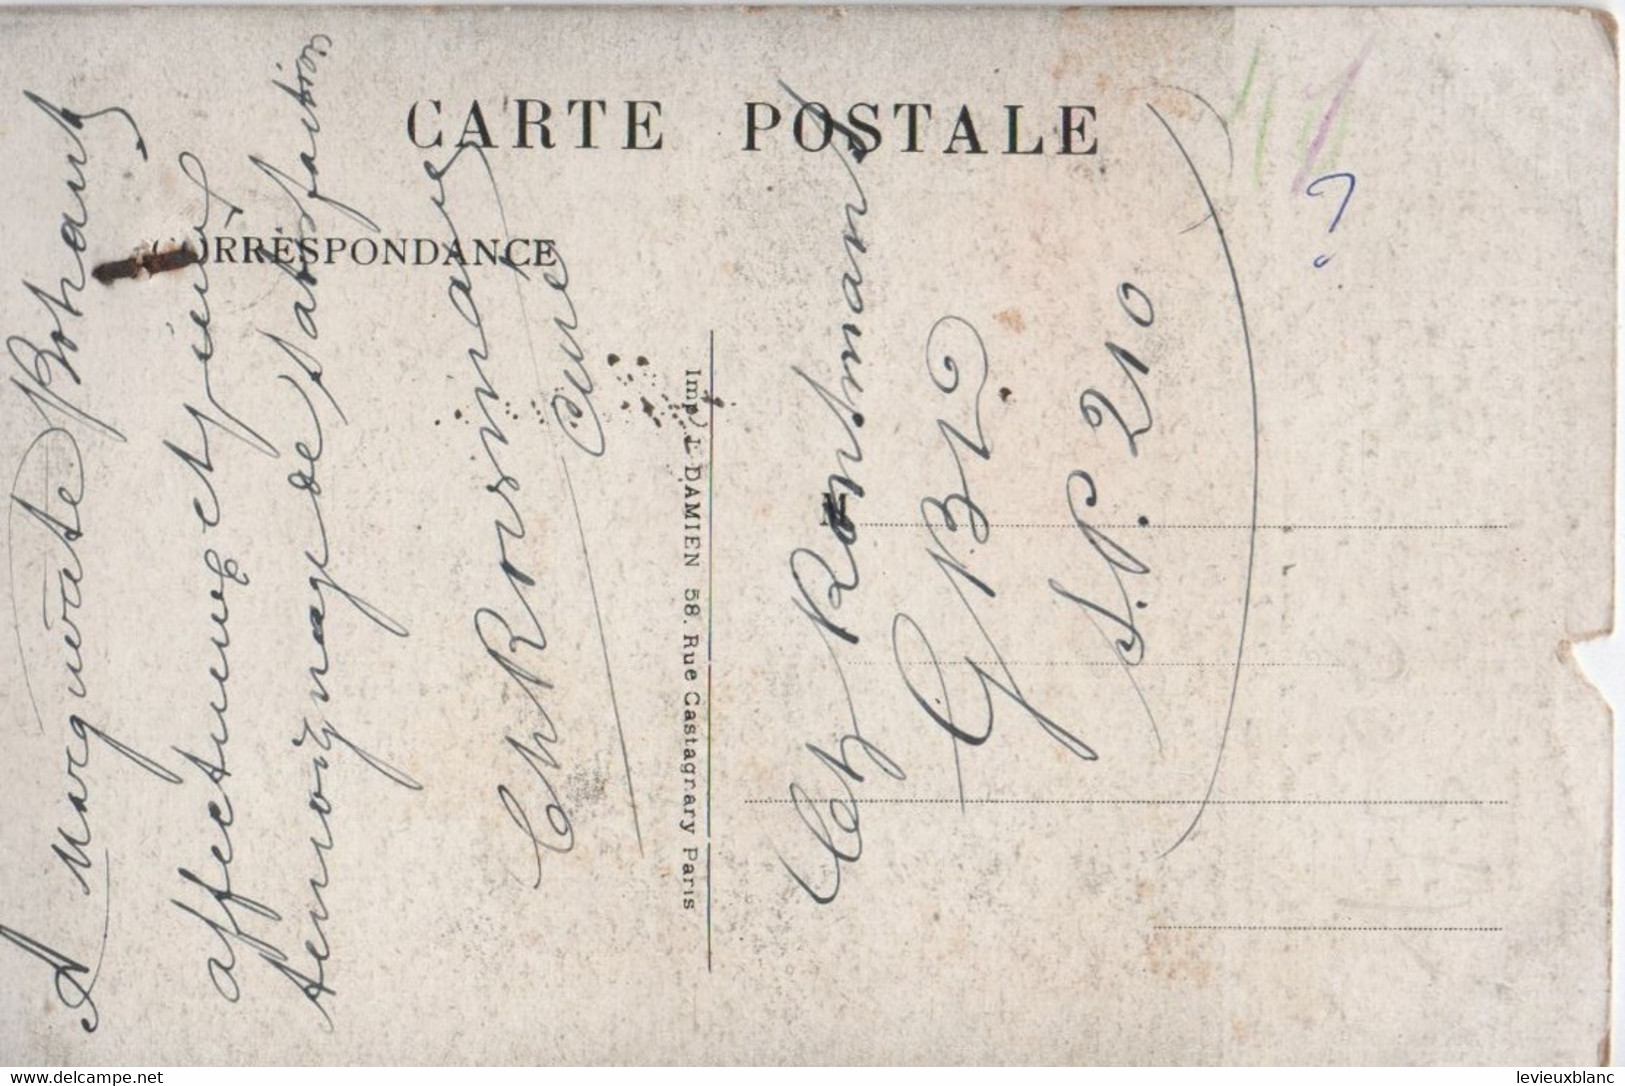 CARTE POSTALE
CORRESPONDANCE
A Marguerite Bohard,
affectueux et pieux
témoignage de satisfaction
Ch Rousmare
Curé
Imp. L. DAMIEN 58. Rue Castagnary Paris
G B D
S. P. 210
?
www.delcampe.net
levieuxblanc